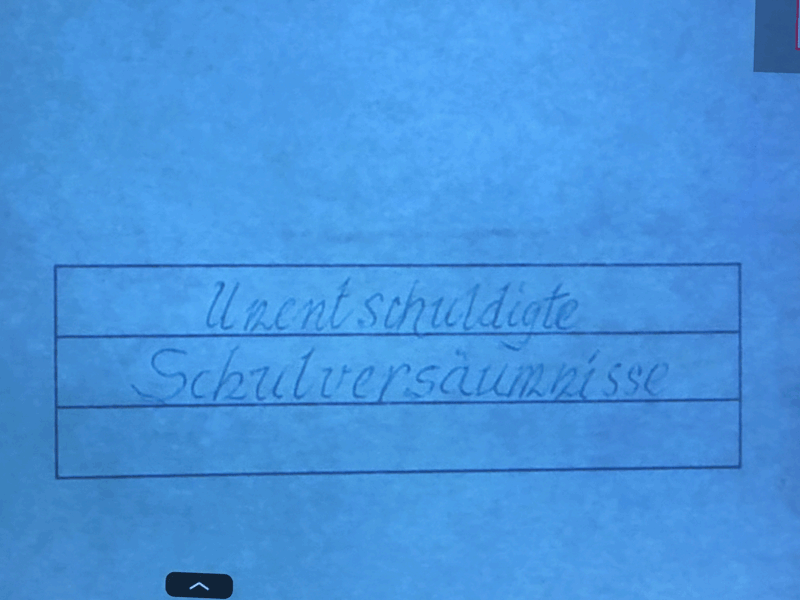 Unentschuldigte
Schulversäumnisse